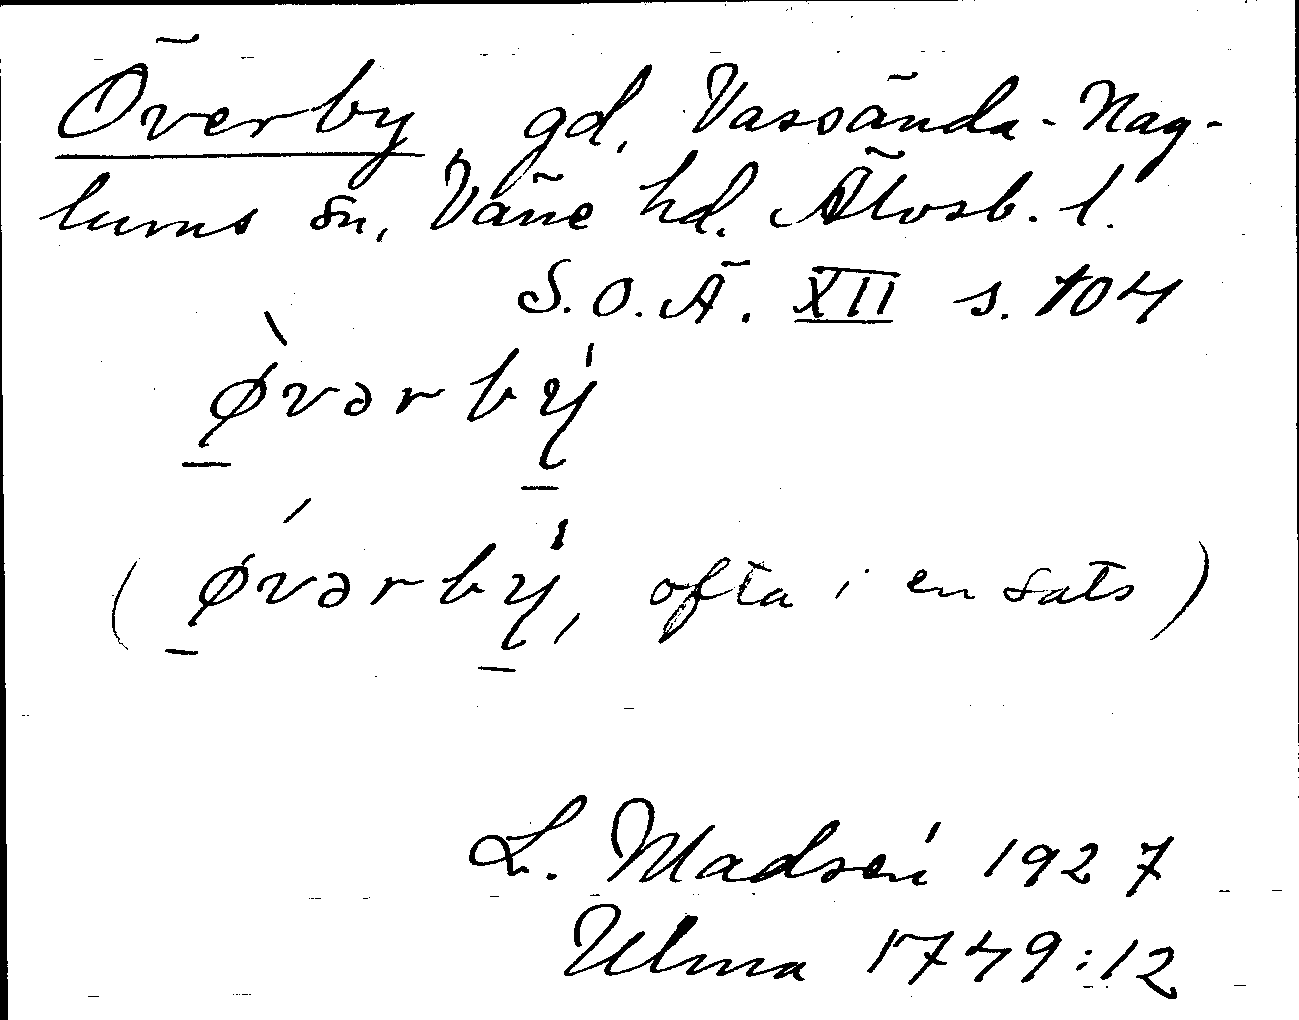 Överby gd, Vassända-Nag-
lums sn, Väne hd. Älvsb. l.
S.O.Ä. XII s. 104
ø̀vərbý
(ǿvərbý, ofta i en sats)
L. Madsén 1927
Ulma 1749:12